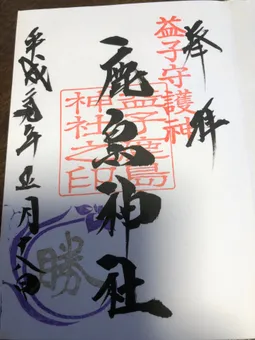 奉拝
益子守護神
鹿島神社
益子鹿島神社之印
勝
平成元年五月十八日